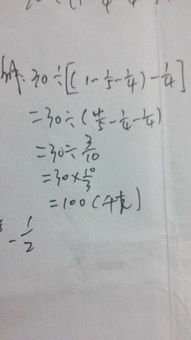 解: 30÷[(1-1/5-1/4)-1/4]
=30÷(4/5-1/4-1/4)
=30÷3/10
=30×10/3
=100(千克)
-1/2